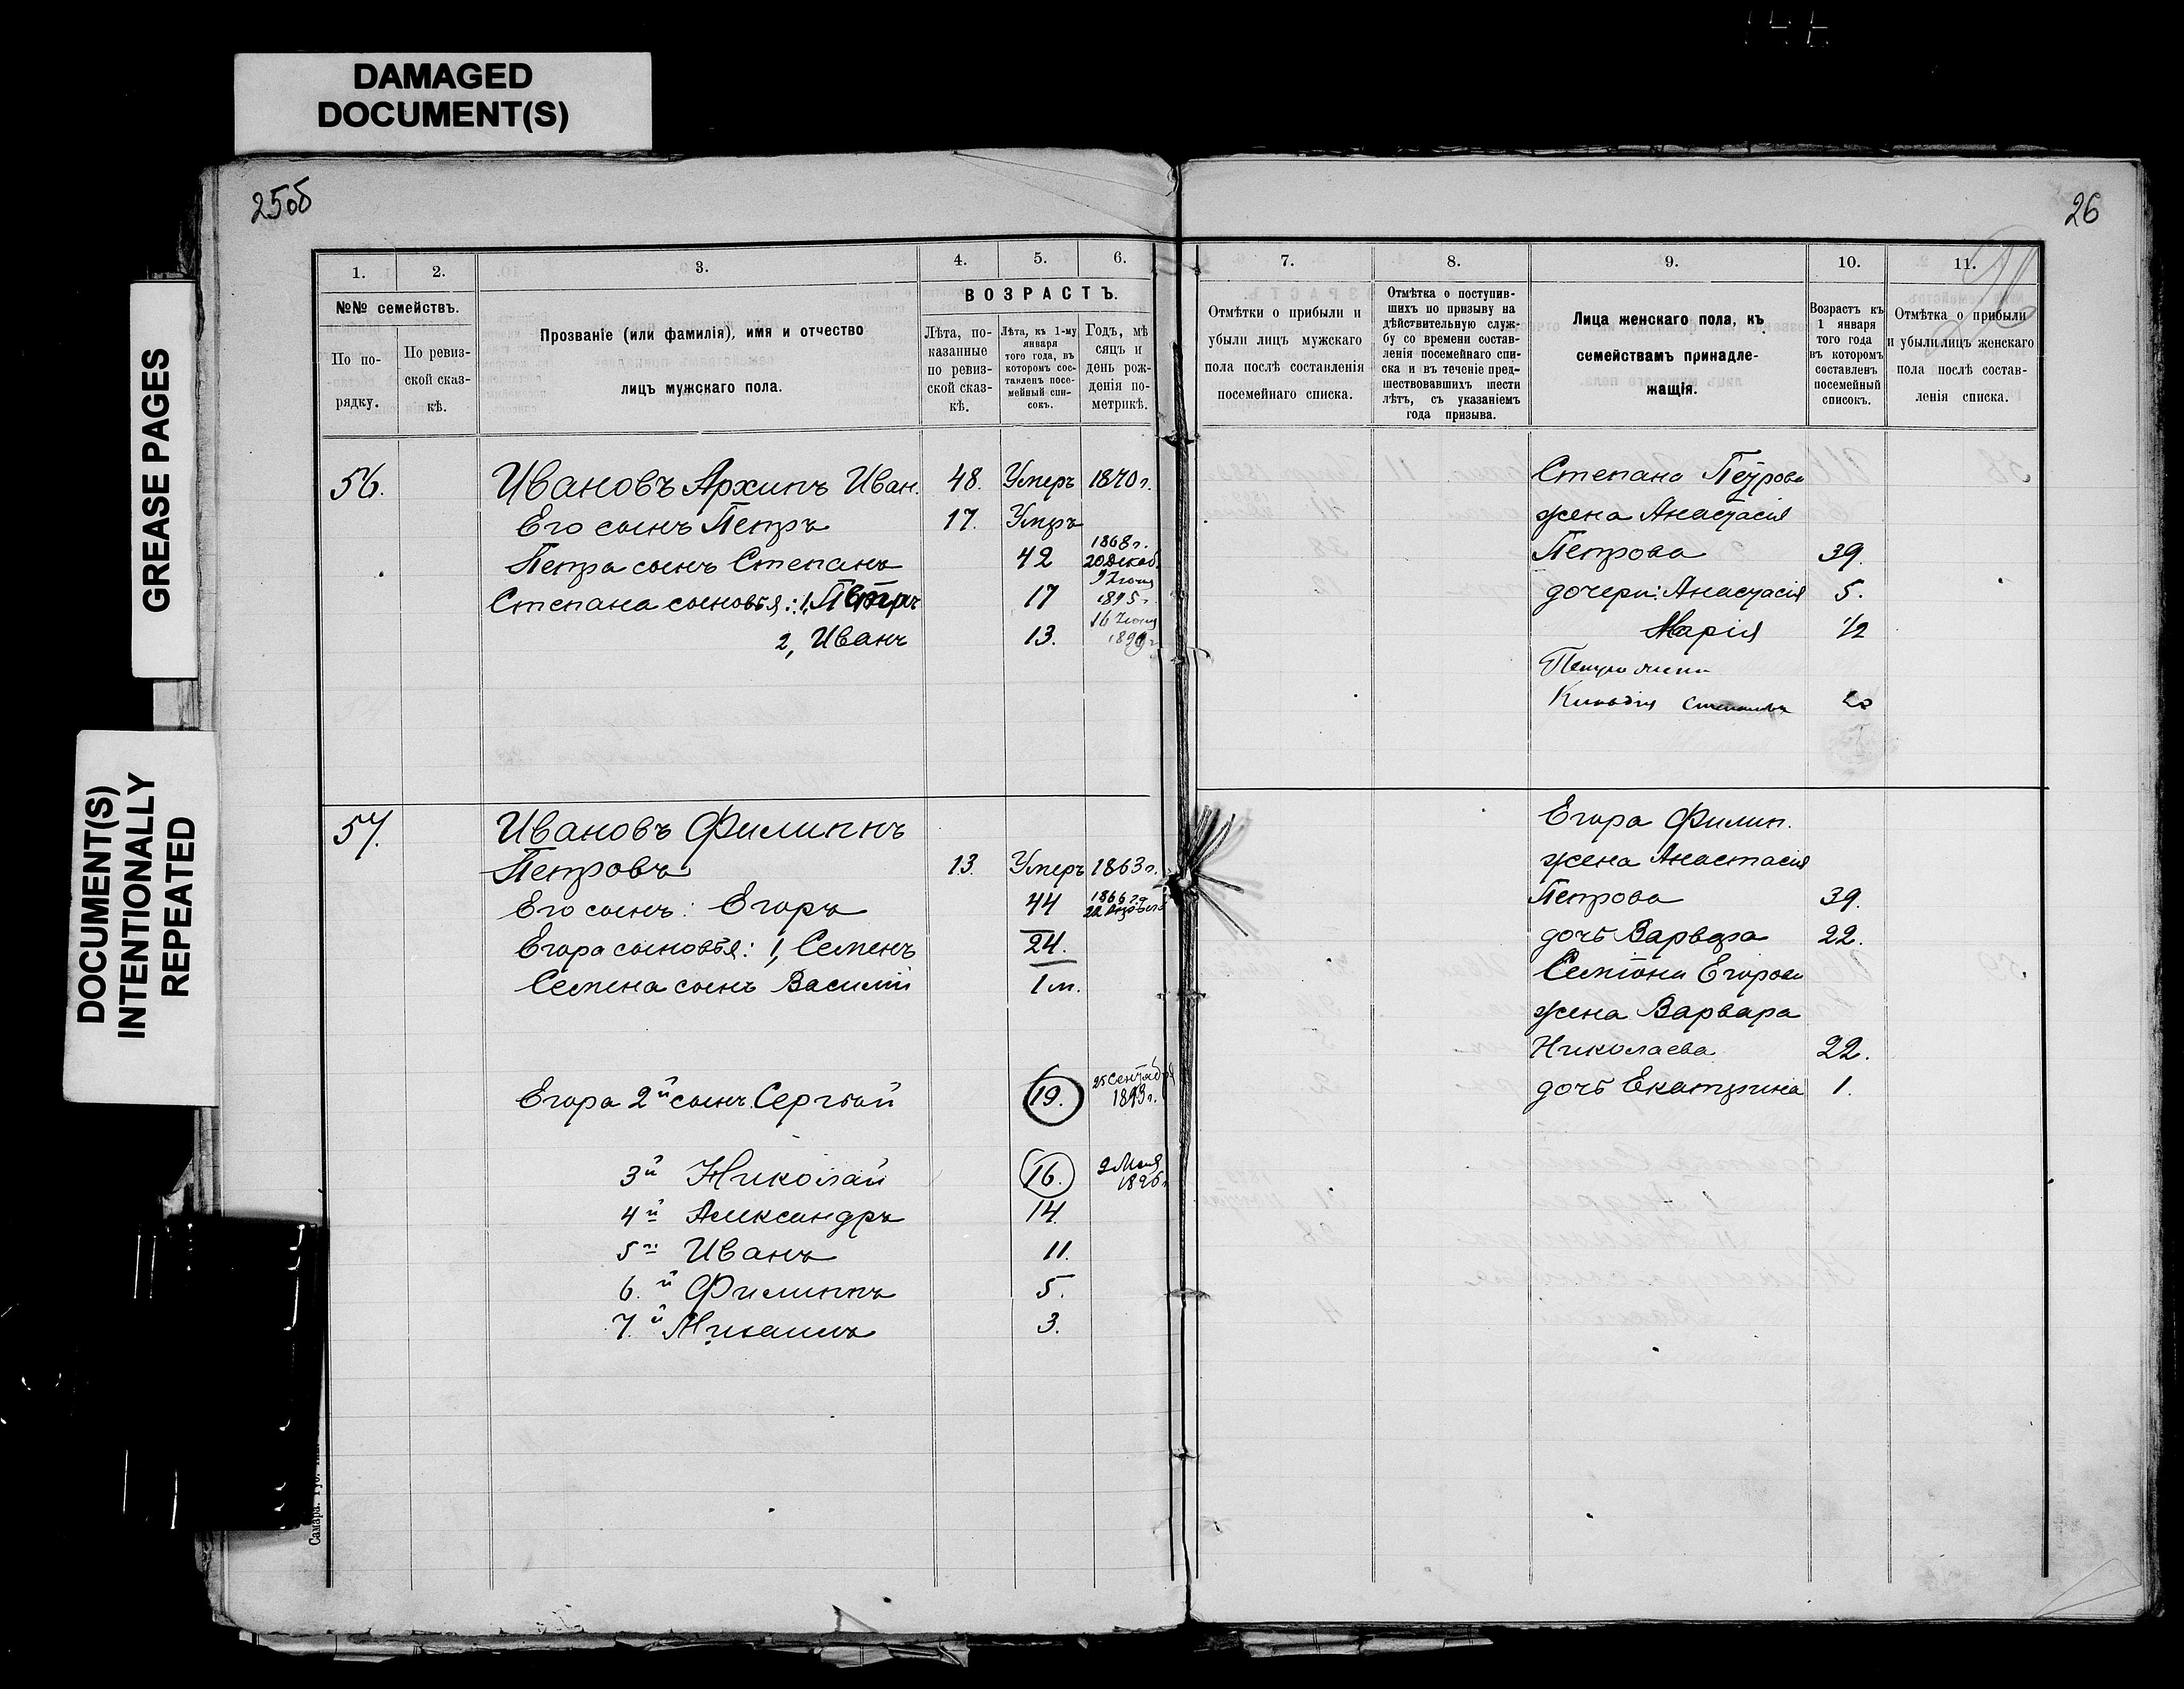 DAMAGED
DOCUMENT(S)
GREASE PAGES
DOCUMENT(S)
INTENTIONALLY
REPEATED
25об
26
1.
2.
3.
4.
5.
6.
№№ семействъ.
По по-
рядку.
По ревиз-
ской сказ-
кѣ.
Прозваніе (или фамилія), имя и отчество
лицъ мужскаго пола.
ВОЗРАСТЪ.
Лѣта, по-
казанные
по ревиз-
ской сказ-
кѣ.
Лѣта, къ 1-му
января
того года, въ
которомъ сос-
тавленъ посе-
мейный спи-
сокъ.
Годъ, мѣ
сяцъ и
день рож-
денія по-
метрикѣ.
56.
Ивановъ Архипъ Иван. 48. Умеръ 1870 г.
Его сынъ Петръ 17. Умръ
Петра сынъ Степанъ 42 1868 г. 20 Декаб.
Степана сыновья: 1, Петръ 17 1895 г.
2, Иванъ 13. 16
57.
Ивановъ Филиппъ
Петровъ 13. Умеръ 1863 г.
Его сынъ: Егоръ 44 1866 г. 22
Егора сыновья: 1, Семенъ 24.
Семена сынъ Василій 1 м.
Егора 2й сынъ Сергѣй 19. 25 Сентября 1893 г.
3й Николай 16. 9 Мая 1896 г.
4й Александръ 14.
5й Иванъ 11.
6.й Филиппъ 5.
7.й Михаилъ 3.
Самара.
7.
8.
9.
10.
11.
Отмѣтки о прибыли и
убыли лицъ мужскаго
пола послѣ составленія
посемейнаго списка.
Отмѣтка о поступив-
шихъ по призыву на
дѣйствительную служ-
бу со времени состав-
ленія посемейнаго спи-
ска и въ теченіе пред-
шествовавшихъ шести
лѣтъ, съ указаніемъ
года призыва.
Лица женскаго пола, къ
семействамъ принадле-
жащія.
Возрастъ къ
1 января
того года
въ которомъ
составленъ
посемейный
списокъ.
Отмѣтка о прибыли
и убыли лицъ женскаго
пола послѣ состав-
ленія списка.
Степана Петрова
жена Анастасія
Петрова 39.
дочери: Анастасія 5.
Марія 1/2
Егора Филип.
жена Анастасія
Петрова 39.
дочь Варвара 22.
Семіона Егорова
жена Варвара
Николаева 22.
дочь Екатерина 1.